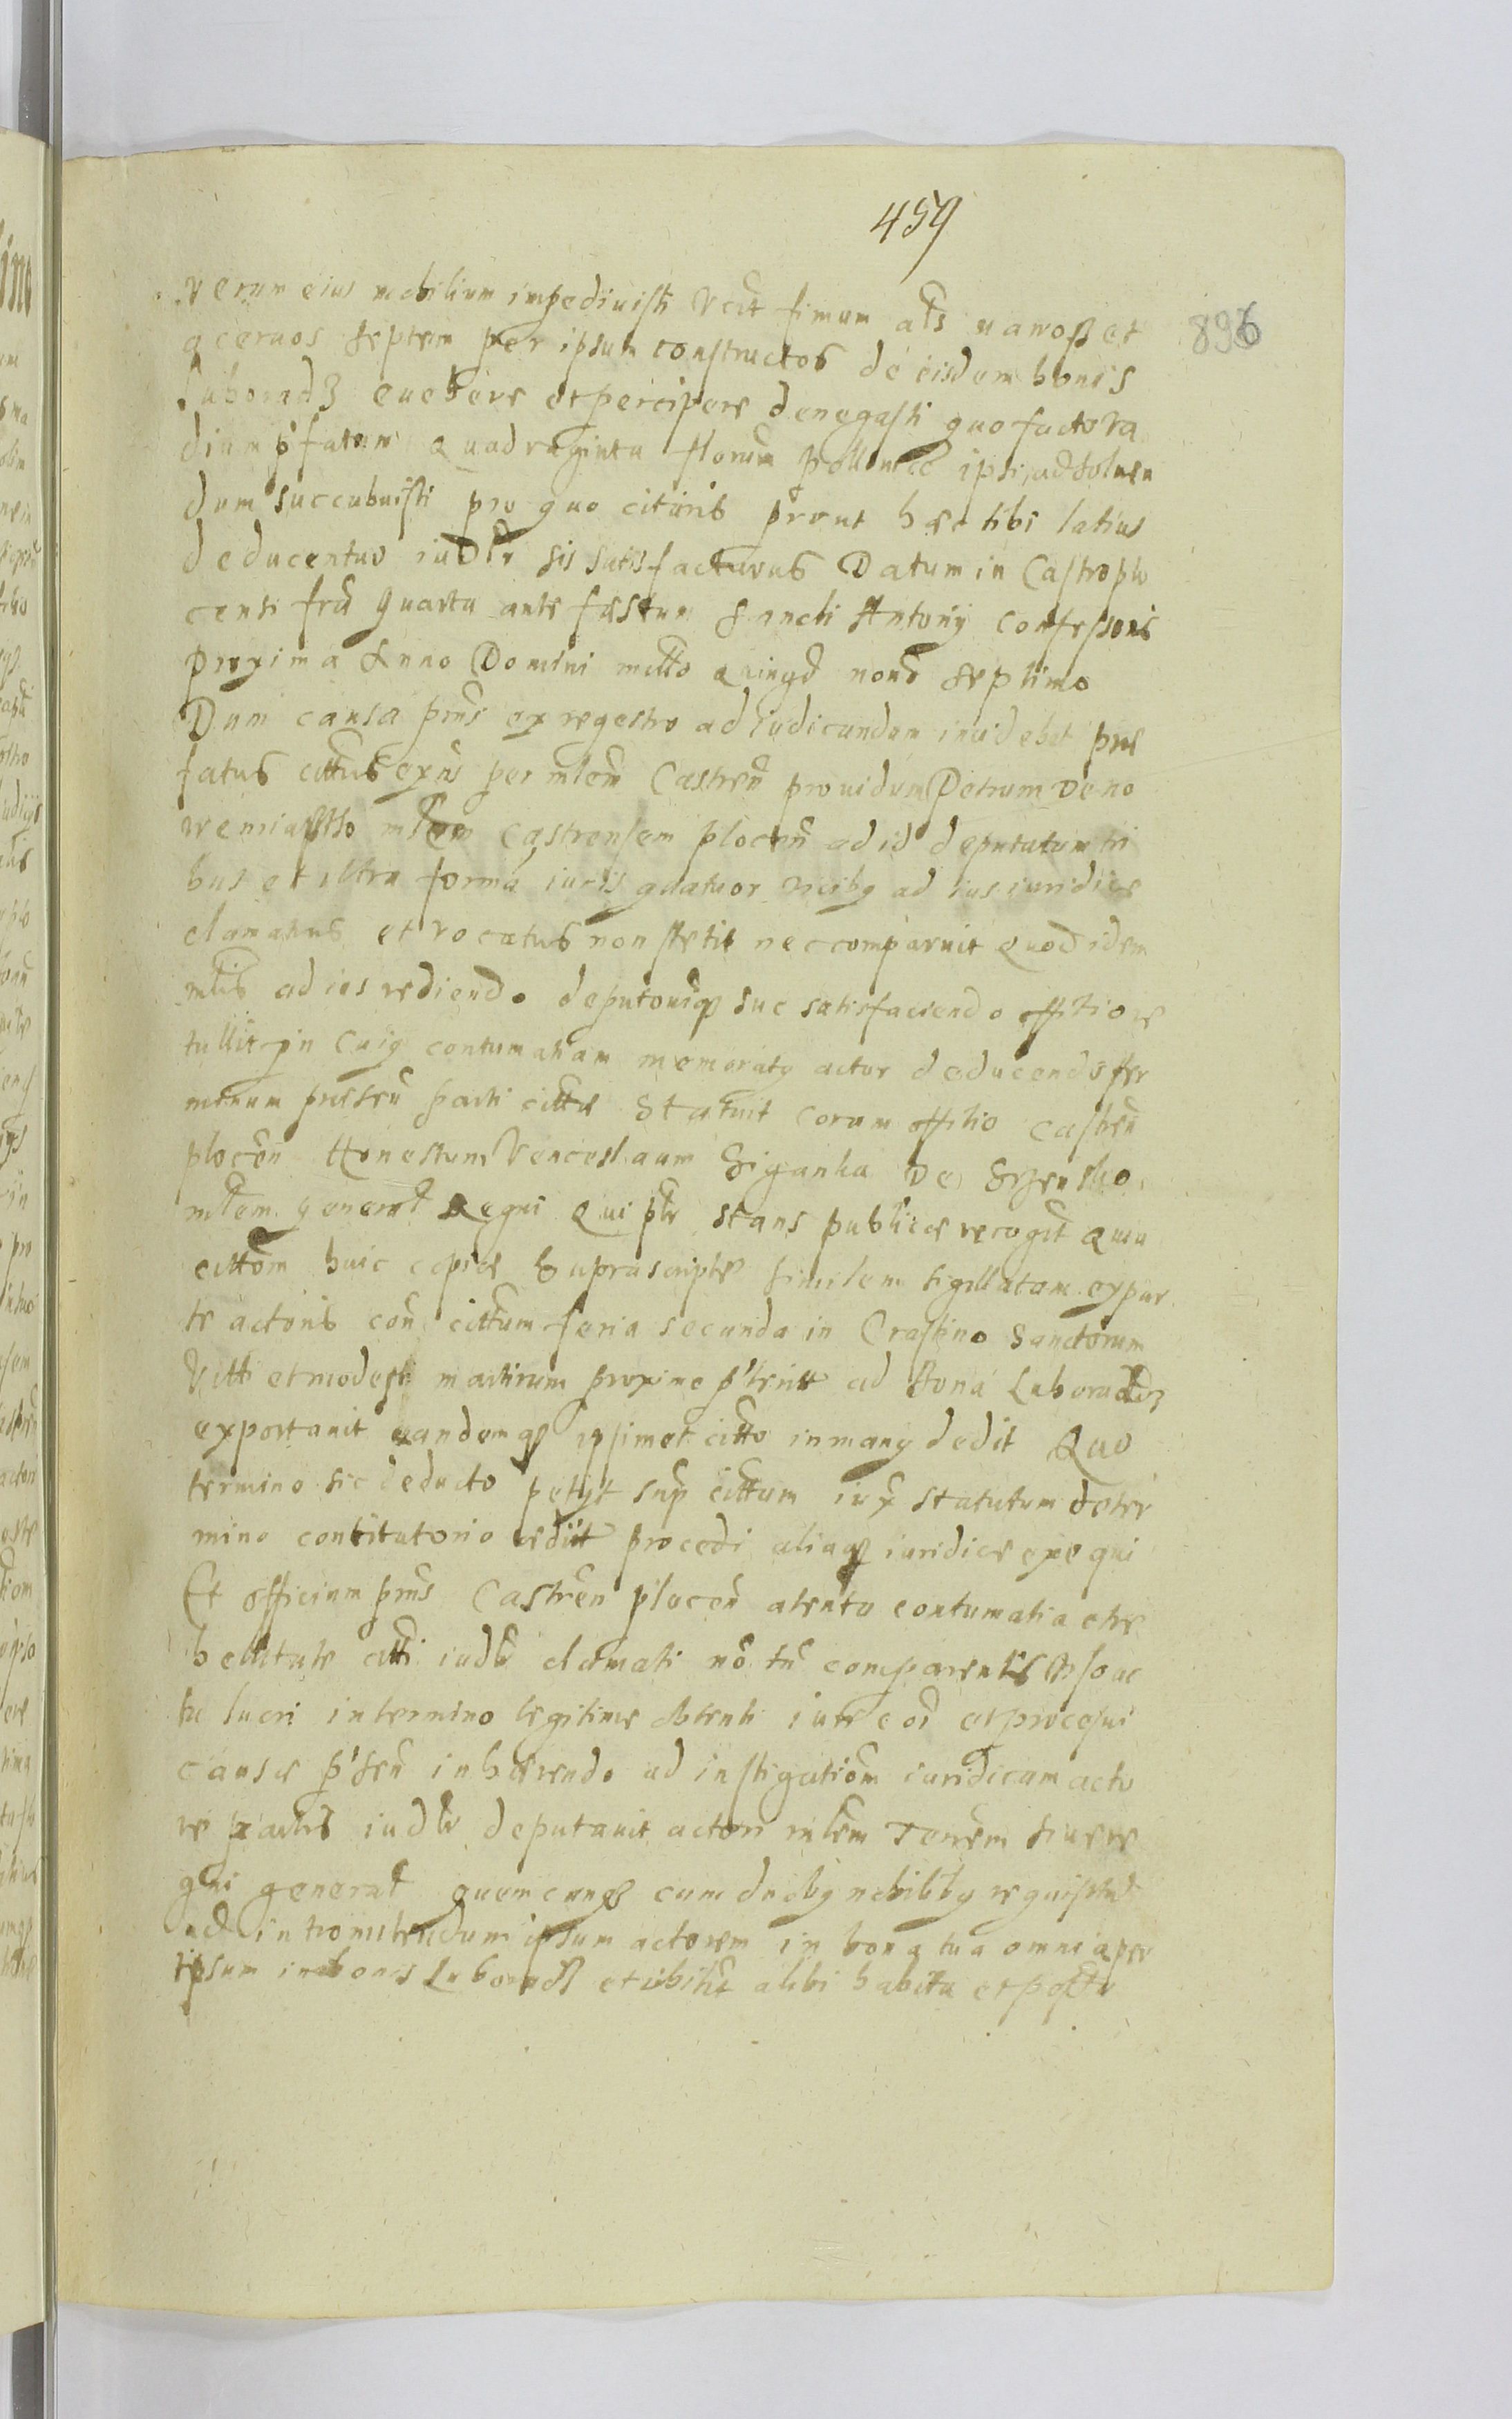 459
896
rerum eius mobilium impedivisti Vtit fimum als nawosz et
acervos septem per ipsum constructos de eisdem bonis
Luboradz evehere et percipere denegasti quo facto va
dium pfatum Quadraginta floren pollonice ipsi ad solven
dum succubuisti pro quo citaris prout haec tibi latius
deducentur iudlr sis satisfacturus Datum in Castro plo
censi fria Quarta ante fæstum Sancti Antony Confessoris
proxima Anno Domini millo Quingd nond septimo
Dum causa pns ex regestro ad iudicandum incidebat præ
fatus cittus exns per mlem Castren providum Petrum De no
wemiastho mlem castrensem plocen ad id deputatum tri
bus et ultra forma iuris quatuor vicibq ad ius iuridice
clamatus et vocatus non stetit nec comparuit Quod idem
mlis ad ius rediendo deputoniq sue satisfaciendo offitio re
tullit in Cuiq contumatiam memoratq actor deducendo ter
minum præsen parti cittæ Statuit coram offitio castren
plocen Honestum Venceslaum Siganka De Srzensko
mlem general Regni Qui plr stans publice recogt Quia
cittom huic copiæ Suprascriptæ similem sigillatam ex par
te actoris con cittum feria secunda in Crastino Sanctorum
Vitti et modesti martirum proxime pterit ad Bona Luboradz
exportavit eandemq ipsimet citto in manq dedit Quo
termino sic deducto petyt sup cittum iux statutum de ter
mino concitatorio ediit procedi aliaq iuridice exequi
Et officium pns Castren plocen atenta contumatia et re
bellitate citti iudlr clamati no tn comparentis ipso ac
tu lucri in termino legitime obtenti iure coi et processui
causæ psen inhærendo ad instigationem iuridicam acto
reæ partis iudlr deputavit actori mlem Terrem sive re
gni general quemcunq cum duobq nobilibq requisitus
ad intromittendum ipsum actorem in bona tua omnia per
ipsum in bonis Luboradz et ubilit alibi habita et possa